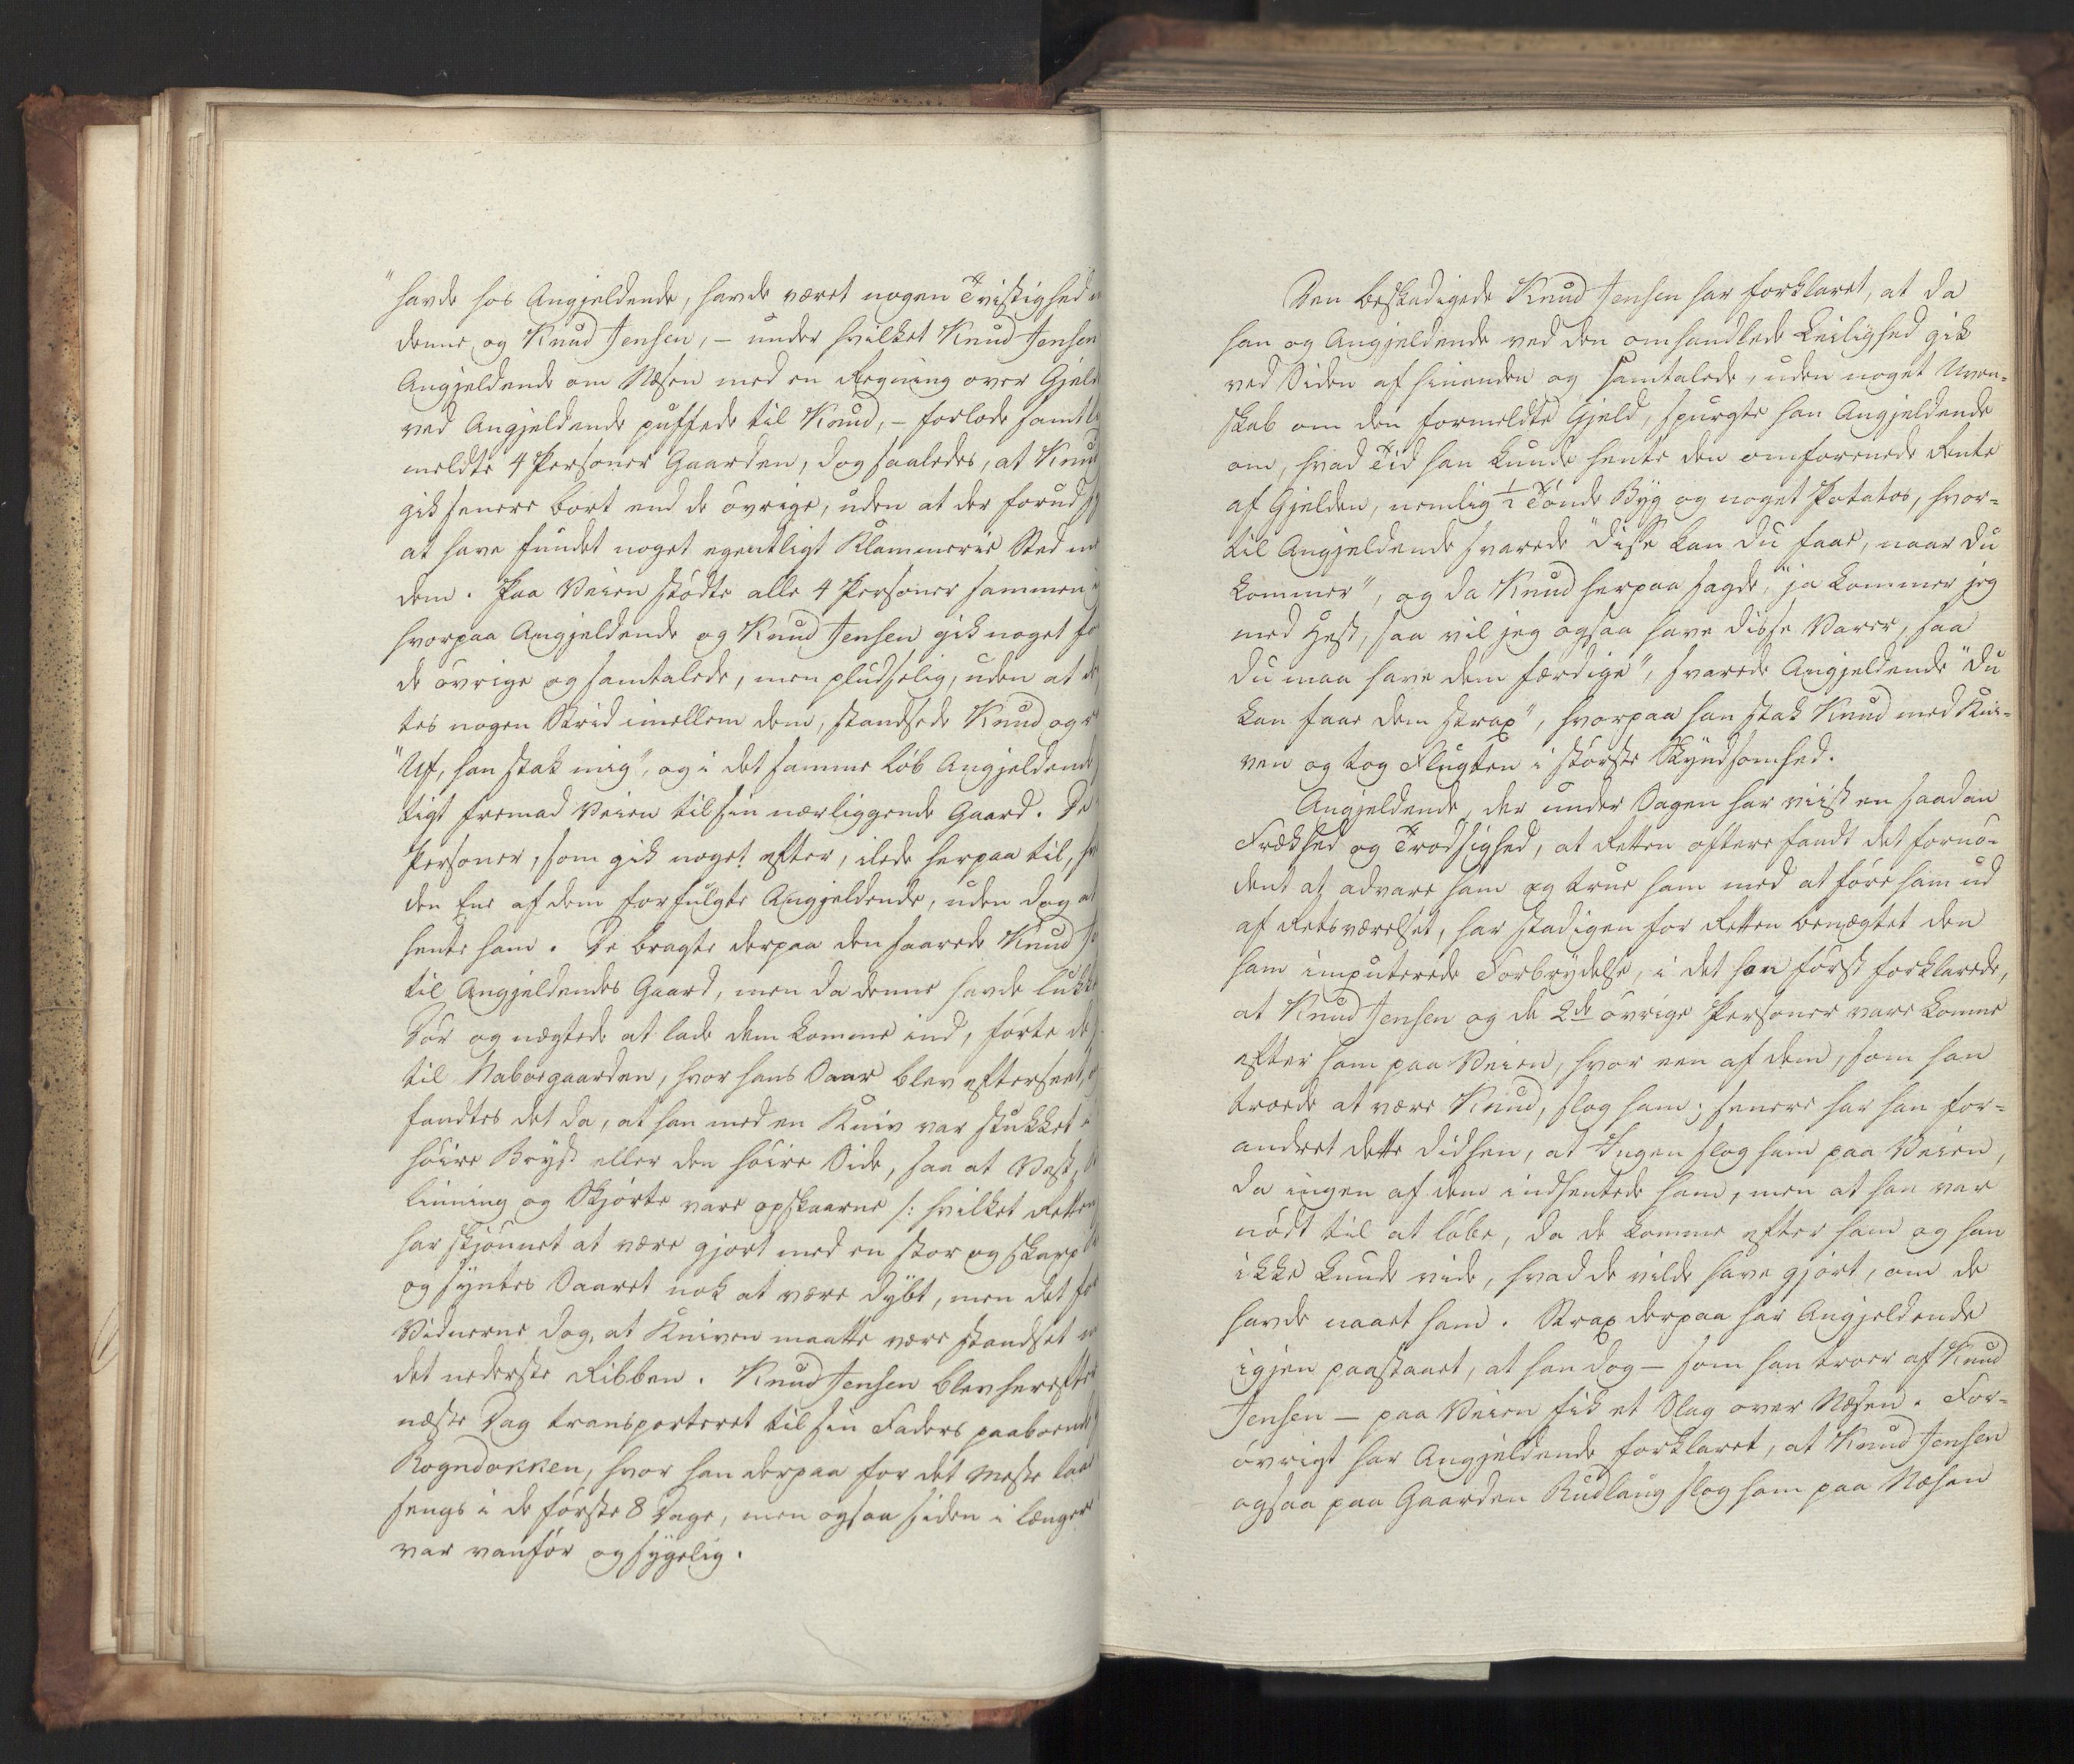 "havde hos Angjeldende, havde været nogen Tvistighed
denne og Knud Jensen, – under hvilket Knud Jensen
Angjeldende om Næsen med en Regning over Gjeld
ved Angjeldende puffede til Knud, – forlode samtl
meldte 4 Personer Gaarden, dog saaledes, at Knud
gik senere bort end de øvrige, uden at der forud
at have fundet noget egentligt Klammerie Sted
dem. Paa Veien stødte alle 4 Personer sammen
hvorpaa Angjeldende og Knud Jensen gik noget
de øvrige og samtalede, men pludselig, uden at
tes nogen Strid imellem dem, standsede Knud og
"Uf, han stak mig", og i det samme løb Angjeldende
tigt fremad Veien til sin nærliggende Gaard. De
Personer, som gik noget efter, ilede herpaa til,
den Ene af dem forfulgte Angjeldende, uden dog at
hente ham. De bragte derpaa den saarede Knud
til Angjeldendes Gaard, men da denne havde lukket
Dør og nægtede at lade dem komme ind, førte de
til Naboegaarden, hvor hans Saar blev efterseet,
fandtes det da, at han med en Kniv var stukket i
høire Bryst eller den høire Side, saa at Vest,
linning og Skjorte vare opskaarne /: hvilket Retten
har skjønnet at være gjort med en stor og skarp
og syntes Saaret nok at være dybt, men det
Vidnerne dog, at Kniven maatte være standset
det nederste Ribben. Knud Jensen blev herefter
næste Dag transporteret til sin Faders paaboende
Rogndokken, hvor han derpaa for det meste laae
sengs i de første 8 Dage, men ogsaa siden i længere
var vanfør og sygelig.
Den beskadigede Knud Jensen har forklaret, at da
han og Angjeldende ved den omhandlede Leilighed gik
ved Siden af hinanden og samtalede, uden noget Uven-
skab om den formeldte Gjeld, spurgte han Angjeldende
om, hvad Tid han kunde hente den omforenede Rente
af Gjelden, nemlig ½ Tønde Byg og noget Potatos, hvor-
til Angjeldende svarede "disse kan du faae, naar du
kommer", og da Knud herpaa sagde, "ja kommer jeg
med Hest, saa vil jeg ogsaa have disse Varer, saa
du maa have dem færdige", svarede Angjeldende "du
kan faae dem strax", hvorpaa han stak Knud med Kni-
ven og tog Flugten i største Skyndsomhed.
Angjeldende, der under Sagen har viist en saadan
Frækhed og Trodsighed, at Retten oftere fandt det fornø-
dent at advare ham og true ham med at føre ham ud
af Retsværelset, har stadigen for Retten benægtet den
ham imputerede Forbrydelse, i det han først forklarede,
at Knud Jensen og de 2de øvrige Personer vare komne
efter ham paa Veien, hvor een af dem, som han
troede at være Knud, slog ham; senere har han for-
andret dette didhen, at Ingen slog ham paa Veien,
da ingen af dem indhentede ham, men at han var
nødt til at løbe, da de komme efter ham og han
ikke kunde vide, hvad de vilde have gjort, om de
havde naaet ham. Strax derpaa har Angjeldende
igjen paastaaet, at han dog – som han troer af Knud
Jensen – paa Veien fik et Slag over Næsen. For-
øvrigt har Angjeldende forklaret, at Knud Jensen
ogsaa paa Gaarden Rudlaug slog ham paa Næsen